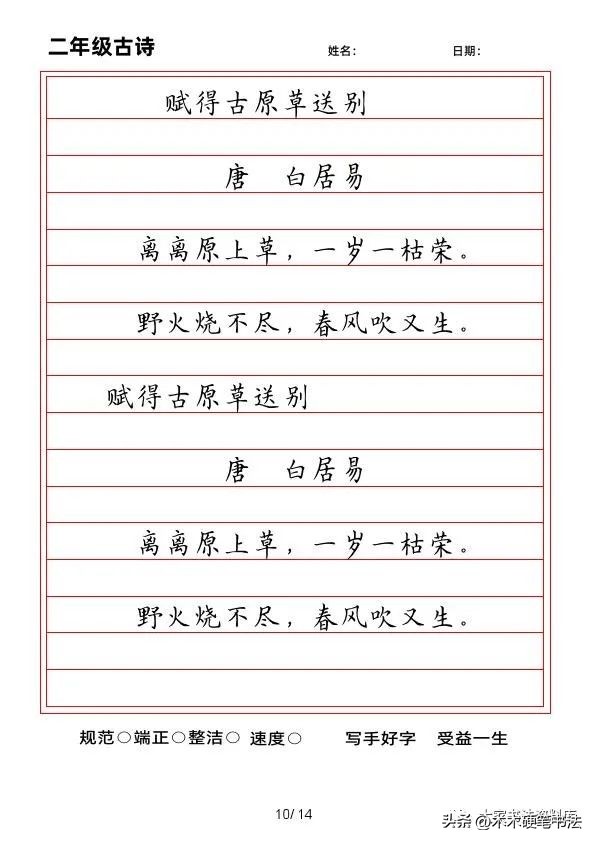 二年级古诗 姓名： 日期：
赋得古原草送别
唐 白居易
离离原上草，一岁一枯荣。
野火烧不尽，春风吹又生。
赋得古原草送别
唐 白居易
离离原上草，一岁一枯荣。
野火烧不尽，春风吹又生。
规范○端正○整洁○ 速度○ 写手好字 受益一生
10/14
头条 @木木硬笔书法